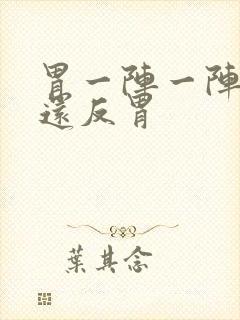 胃一陣一陣
還反胃
葉其念